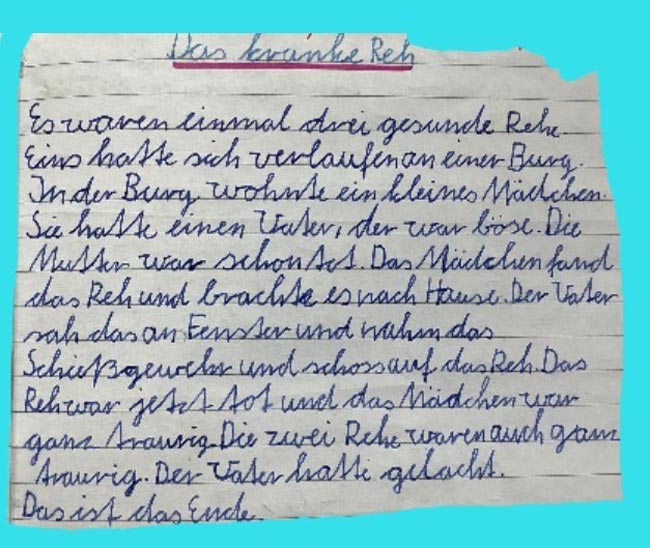 Das kranke Reh
Es waren einmal drei gesunde Rehe.
Eins hatte sich verlaufen an einer Burg.
In der Burg wohnte ein kleines Mädchen.
Sie hatte einen Vater, der war böse. Die
Mutter war schon tot. Das Mädchen fand
das Reh und brachte es nach Hause. Der Vater
sah das an Fenster und nahm das
Schießgewehr und schoss auf das Reh. Das
Reh war jetzt tot und das Mädchen war
ganz traurig. Die zwei Rehe waren auch ganz
traurig. Der Vater hatte gelacht.
Das ist das Ende.